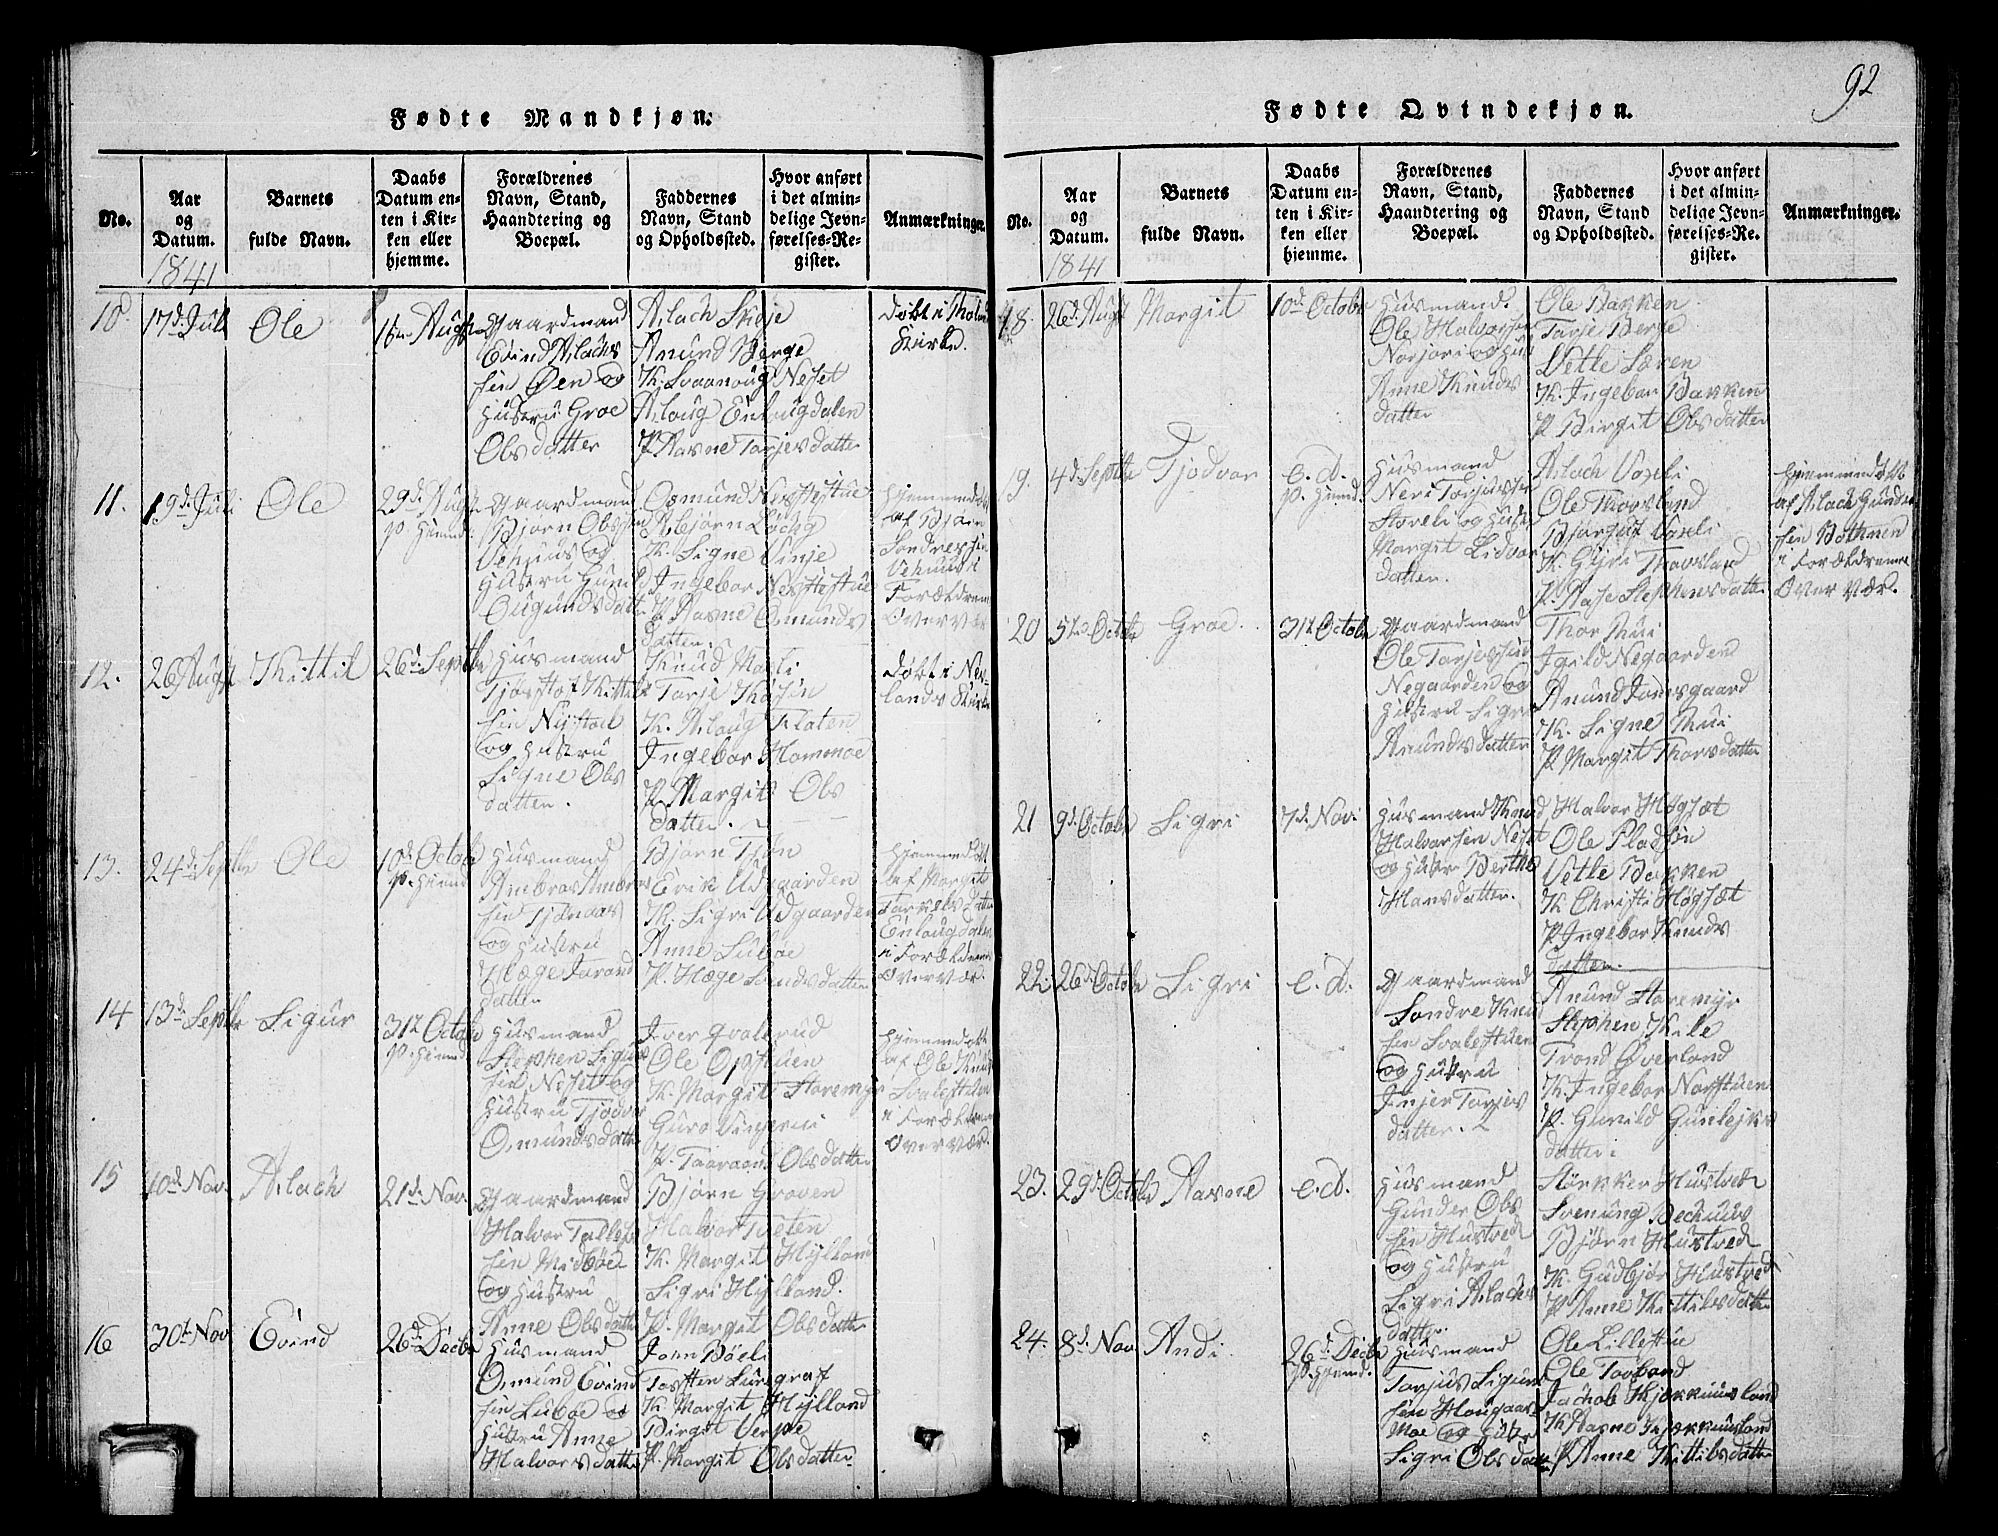 92
Fødte Mandkjøn.
No.
Aar
og
Datum.
1841
Barnets
fulde Navn.
Daabs
Datum en-
ten i Kir-
ken eller
hjemme.
Forældrenes
Navn, Stand,
Haandtering og
Boepæl.
Faddernes
Navn, Stand
og Opholdssted.
Hvor anført
i det almin-
delige Jevn-
førelses-Re-
gister.
Anmærkninger.
10.
17d. Juli
Ole
Gaardmand
Eivind Aslachs
sen Øen og
Hustru Groe
Olsdatter
Aslach Skieje
Anund Berge
K. Svaanoug Neset
Aslaug Enlaugdalen
P. Aasne Tarjesdatter
Døbt i
Kirke.
11.
19d. Juli
Ole
29d. Augst
p. Hiemd.
Gaardmand
Bjørn Olssen
Vehuus og
Hustru Gunild
Ougundsdatt
Osmund Nerstestue
Asbjørn
K. Signe Vinje
Ingebor Nerstestue
P. Aasne Osmunds
datter.
Hjemmedøbt
af Bjørn
Sondressen
Vehuus i
Forældrenes
Overvær
12.
26 Augst
Kittil
26d. Septbr
Husmand
Tjøstolf Kittils
sen Nystad
og Hustru
Signe Ols
datter.
Knud Mosli
Tarje
K. Aslaug Flaten
Ingebor Hommoe
P. Margit Ols
datter.
Døbt i Nes-
lands Kirke
13.
24d. Septbr
Ole
10d. Octobr
p. Hiemd
Husmand
Ambros Ambros
sen Tjønaas
og Hustru
Hæge Jorand
datter
Bjørn Tjøn
Erik Udgaarden
K. Sigri Udgaarden
Anne Lubøe
P. Hæge Svendsdatter
Hjemmedøbt
af Margit
Tarkelsdatter
Enlaugdalen
i Forældrenes
Overvær.
14
13d. Septbr
Sigur
31te Octobr
p. Hiemd
Husmand
Stephen Sigurs
sen Neset og
Hustru Tjodvor
Osmundsdatter
Iver Qvalerud
Ole Opstuen
K. Margit Storemyr
Guro Vinjerui
P. Taaraand Olsdatter
Hjemmedøbt
af Ole Knuds
Svalestuen
i Forældrenes
Overvær.
15
10d. Nov.
Aslach
21d. Nov.
Gaardmand
Halvor Tallefs
sen Midbøe
og Hustru
Anne Olsdatter
Bjørn Groven
Halvor Tveten
K. Margit Hylland
Sigri Hylland.
P. Margit Olsdatter
16
30te Nov.
Evind
26d. Decbr
Husmand
Osmund Evind
sen Lubøe og
Hustru Anne
Halvorsdatter
John Bøeli
Torsten Luregraf
K. Margit Hylland
Birgit Verpe
P. Margit Olsdatter
Fødte Qvindekjøn.
No.
Aar
og
Datum.
1841
Barnets
fulde Navn.
Daabs
Datum en-
ten i Kir-
ken eller
hjemme.
Forældrenes
Navn, Stand,
Haandtering og
Boepæl.
Faddernes
Navn, Stand
og Opholdssted.
Hvor anført
i det almin-
delige Jevn-
førelses-Re-
gister.
Anmærkninger.
18.
26d. Augst
Margit
10d. Octobr
Husmand.
Ole Halvorsen
Norjori og Hus
Anne Knuds
datter
Ole Bakken
Tarje Berge
Vetle Læren
K. Ingebor Bakken
P. Birgit Olsdatter
19.
4d. Septbr
Tjodvor
e. d.
p. Hiemd.
Husmand
Neri Torjussen
Storeli og Hustru
Margit Lidvor
datter.
Aslach Vaseli
Ole Thovsland
Bjørgut Vaseli
K. Gyri Thovsland
P. Aase Stephensdatter
Hjemmedøbt
af Aslach Gunder
sen Bothnen
i Forældrenes
Overvær.
20
5te Octobr
Groe.
31te Octobr
Gaardmand
Ole Tarjessen
Negaarden og
Hustru Sigri
Anundsdatter
Thor Rui
Igild Negaarden
Anund Jonsgaard
K. Signe Rui
P. Margit Thorsdatter
21
9d. Octobr
Sigri
7d. Nov.
Husmand Knud
Halvorsen Neset
og Hustr Berthe
Hansdatter.
Halvor Høgsæt
Ole Pladsen
Vetle Bakken
K Christi Høgsæt
P. Ingebor Knuds
datter.
22.
26d. Octobr
Sigri
e. d.
Gaardmand
Sondre Knud
sen Svalestuen
og Hustru
Injer Tarjes
datter.
Anund Storemyr
Stephen Kile
Trond Øverland
K. Ingebor Norstuen
P. Gunild Gunlejks
datter.
23.
29d. Octobr
Aasne
e. d.
Husmand
Gunder Ols
sen Hustved
og Hustru
Sigri Aslachs
datter.
Størkker Hustved
Svenung Bechuus
Bjørn Hustved
K. Gudbjør Hustved
P. Anne Kittilsdatter
24.
8d. Nov.
Andi.
26d. Decbr
p. Hjemd.
Husmand
Torjus Sigurs
sen Hougaas-
Moe og Hustr
Sigri Olsdatter
Ole Lillestue
Ole Tovland
Jachob Kjørkuusland
K. Aasne Kjørkuusland
P. Anne Kittilsdatter